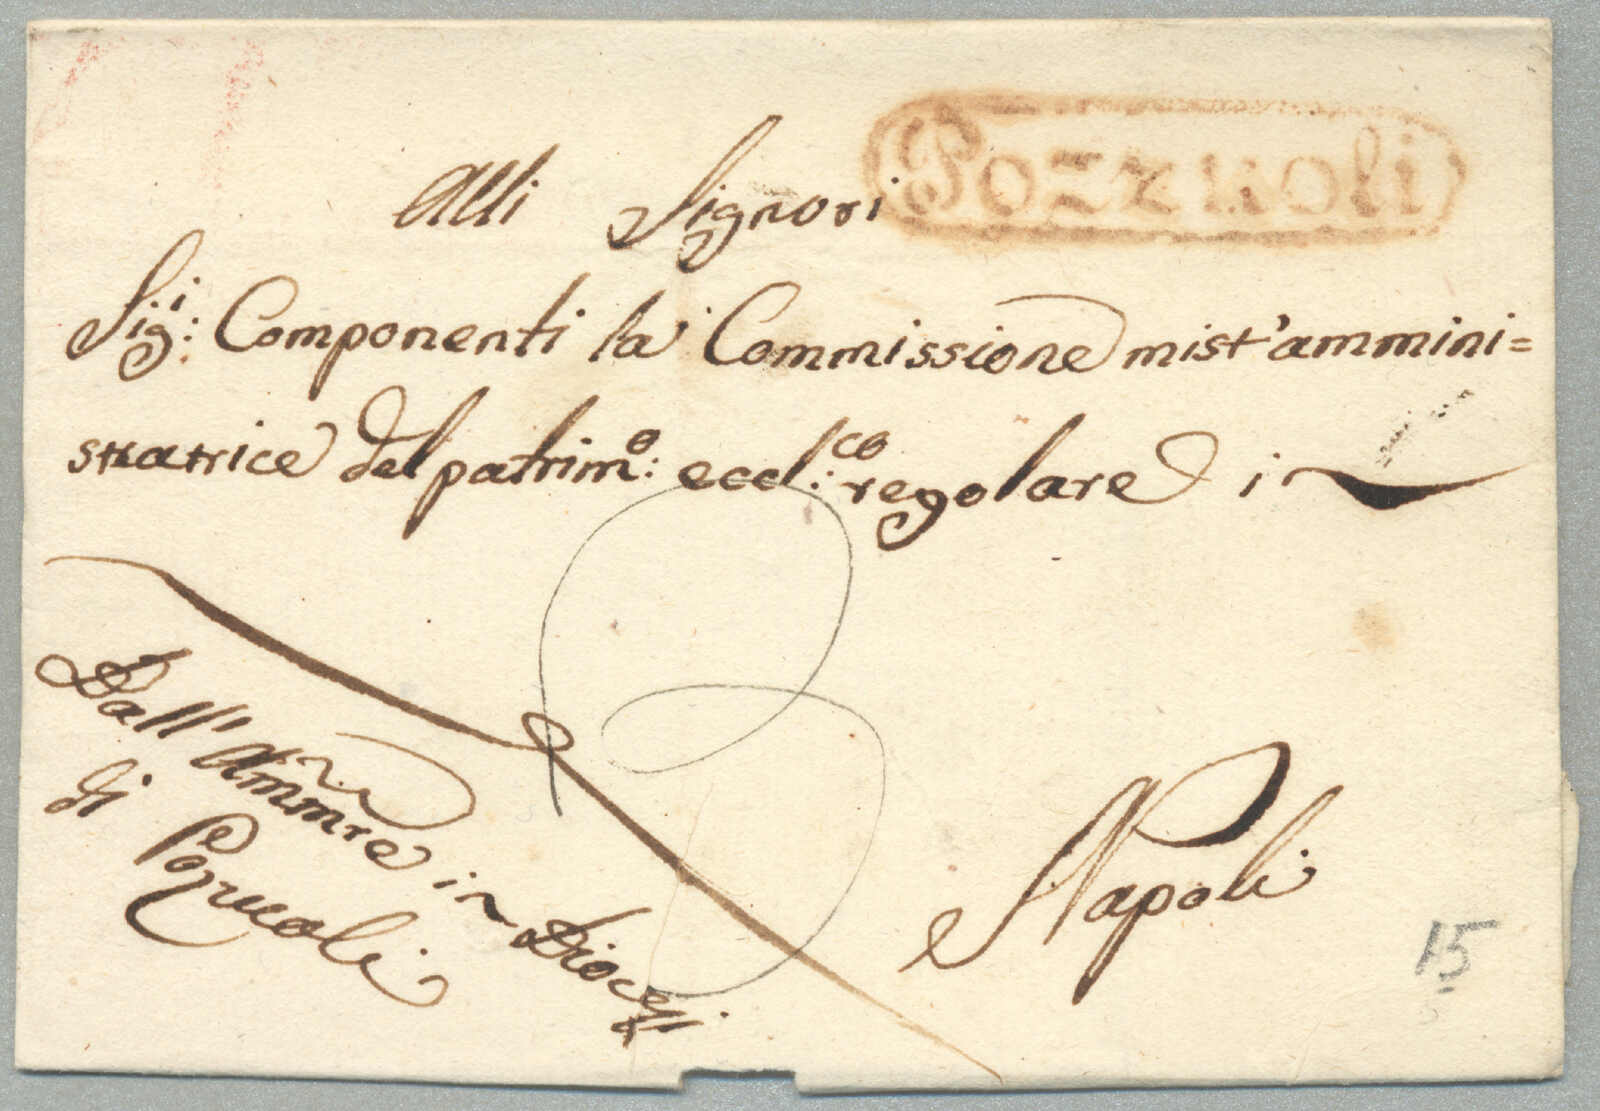 Pozzuoli
Alli Signori
Sig:i Componenti la Commissione mist'ammini=
stratrice del patrim:o eccl:co regolare in
Napoli
Dall' Ammre in Diocesi
di Pozzuoli
15